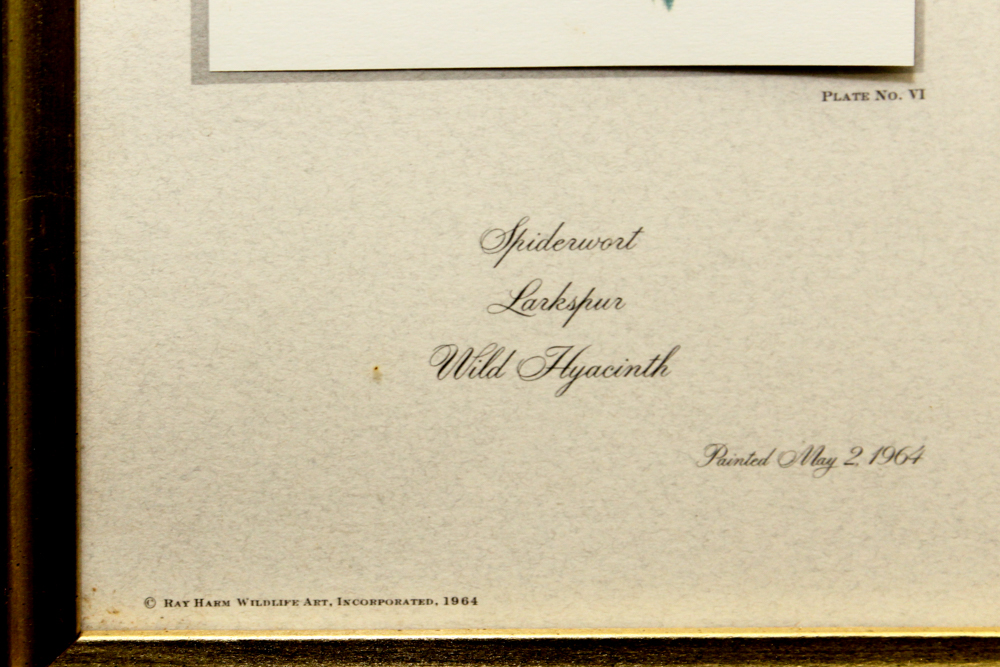 Plate No. VI
Spiderwort
Larkspur
Wild Hyacinth
Painted May 2, 1964
© Ray Harm Wildlife Art, Incorporated, 1964